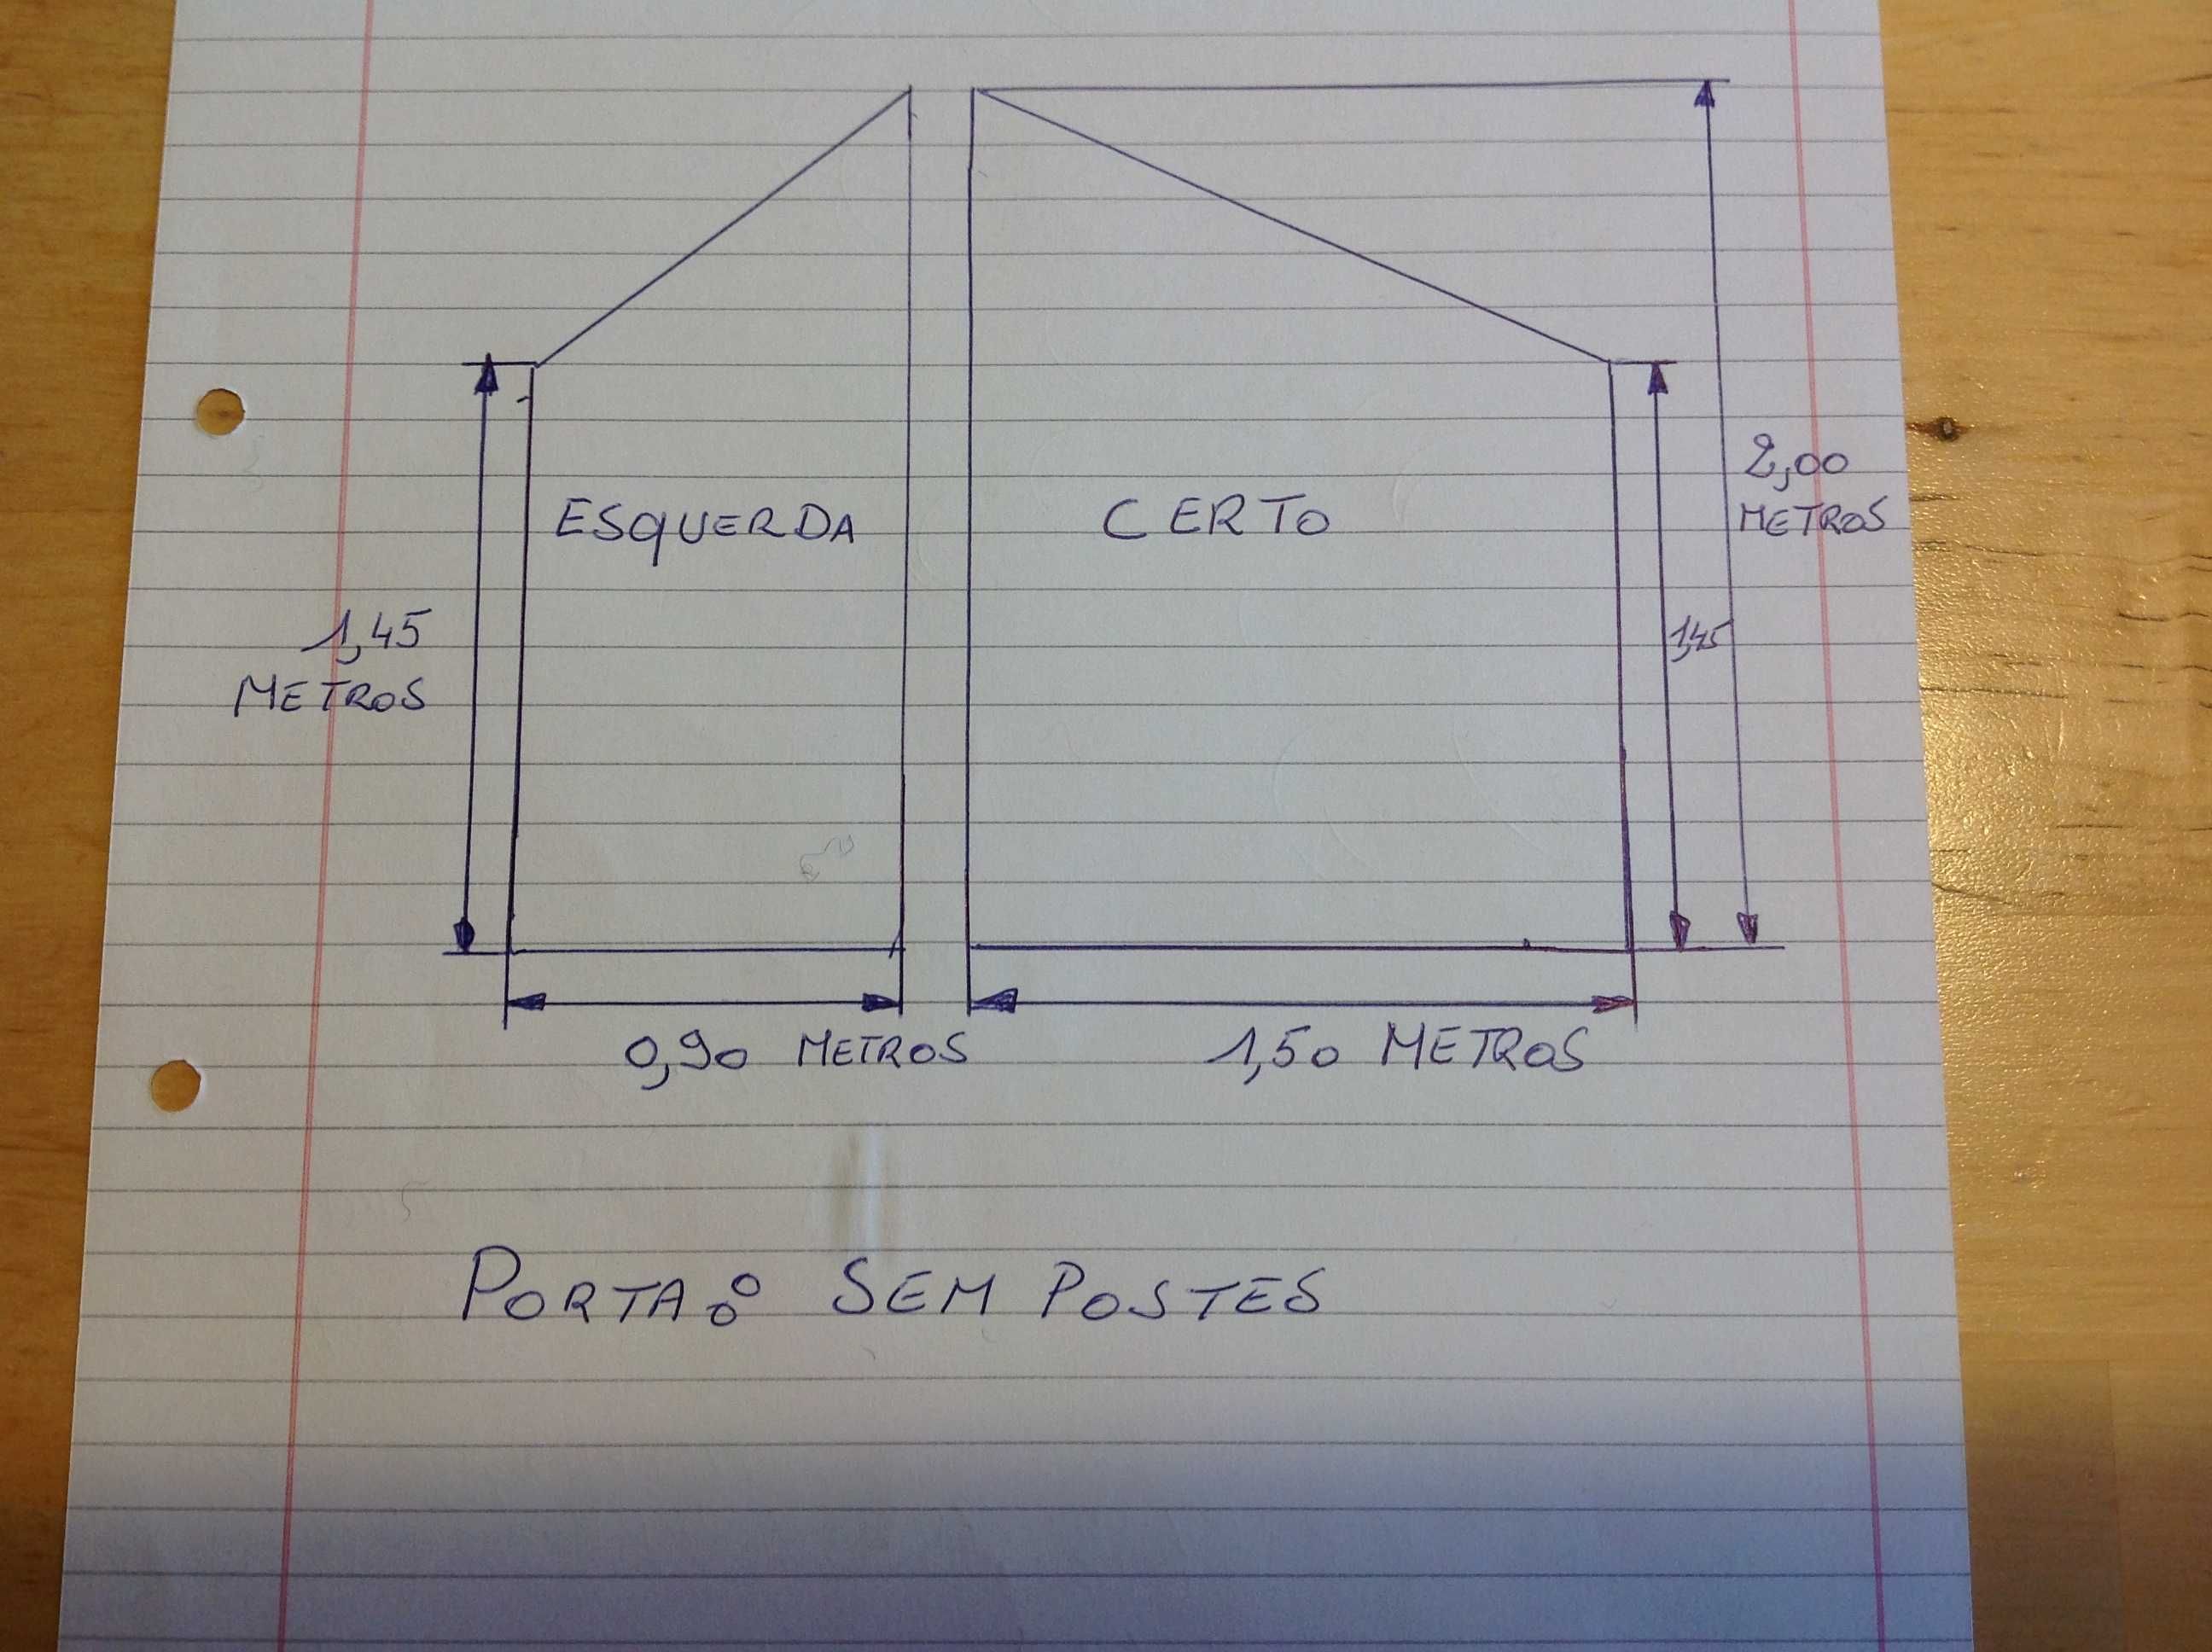 2,00
METROS
ESQUERDA
CERTO
1,45
METROS
1,45
0,90 METROS
1,50 METROS
PORTAO SEM POSTES